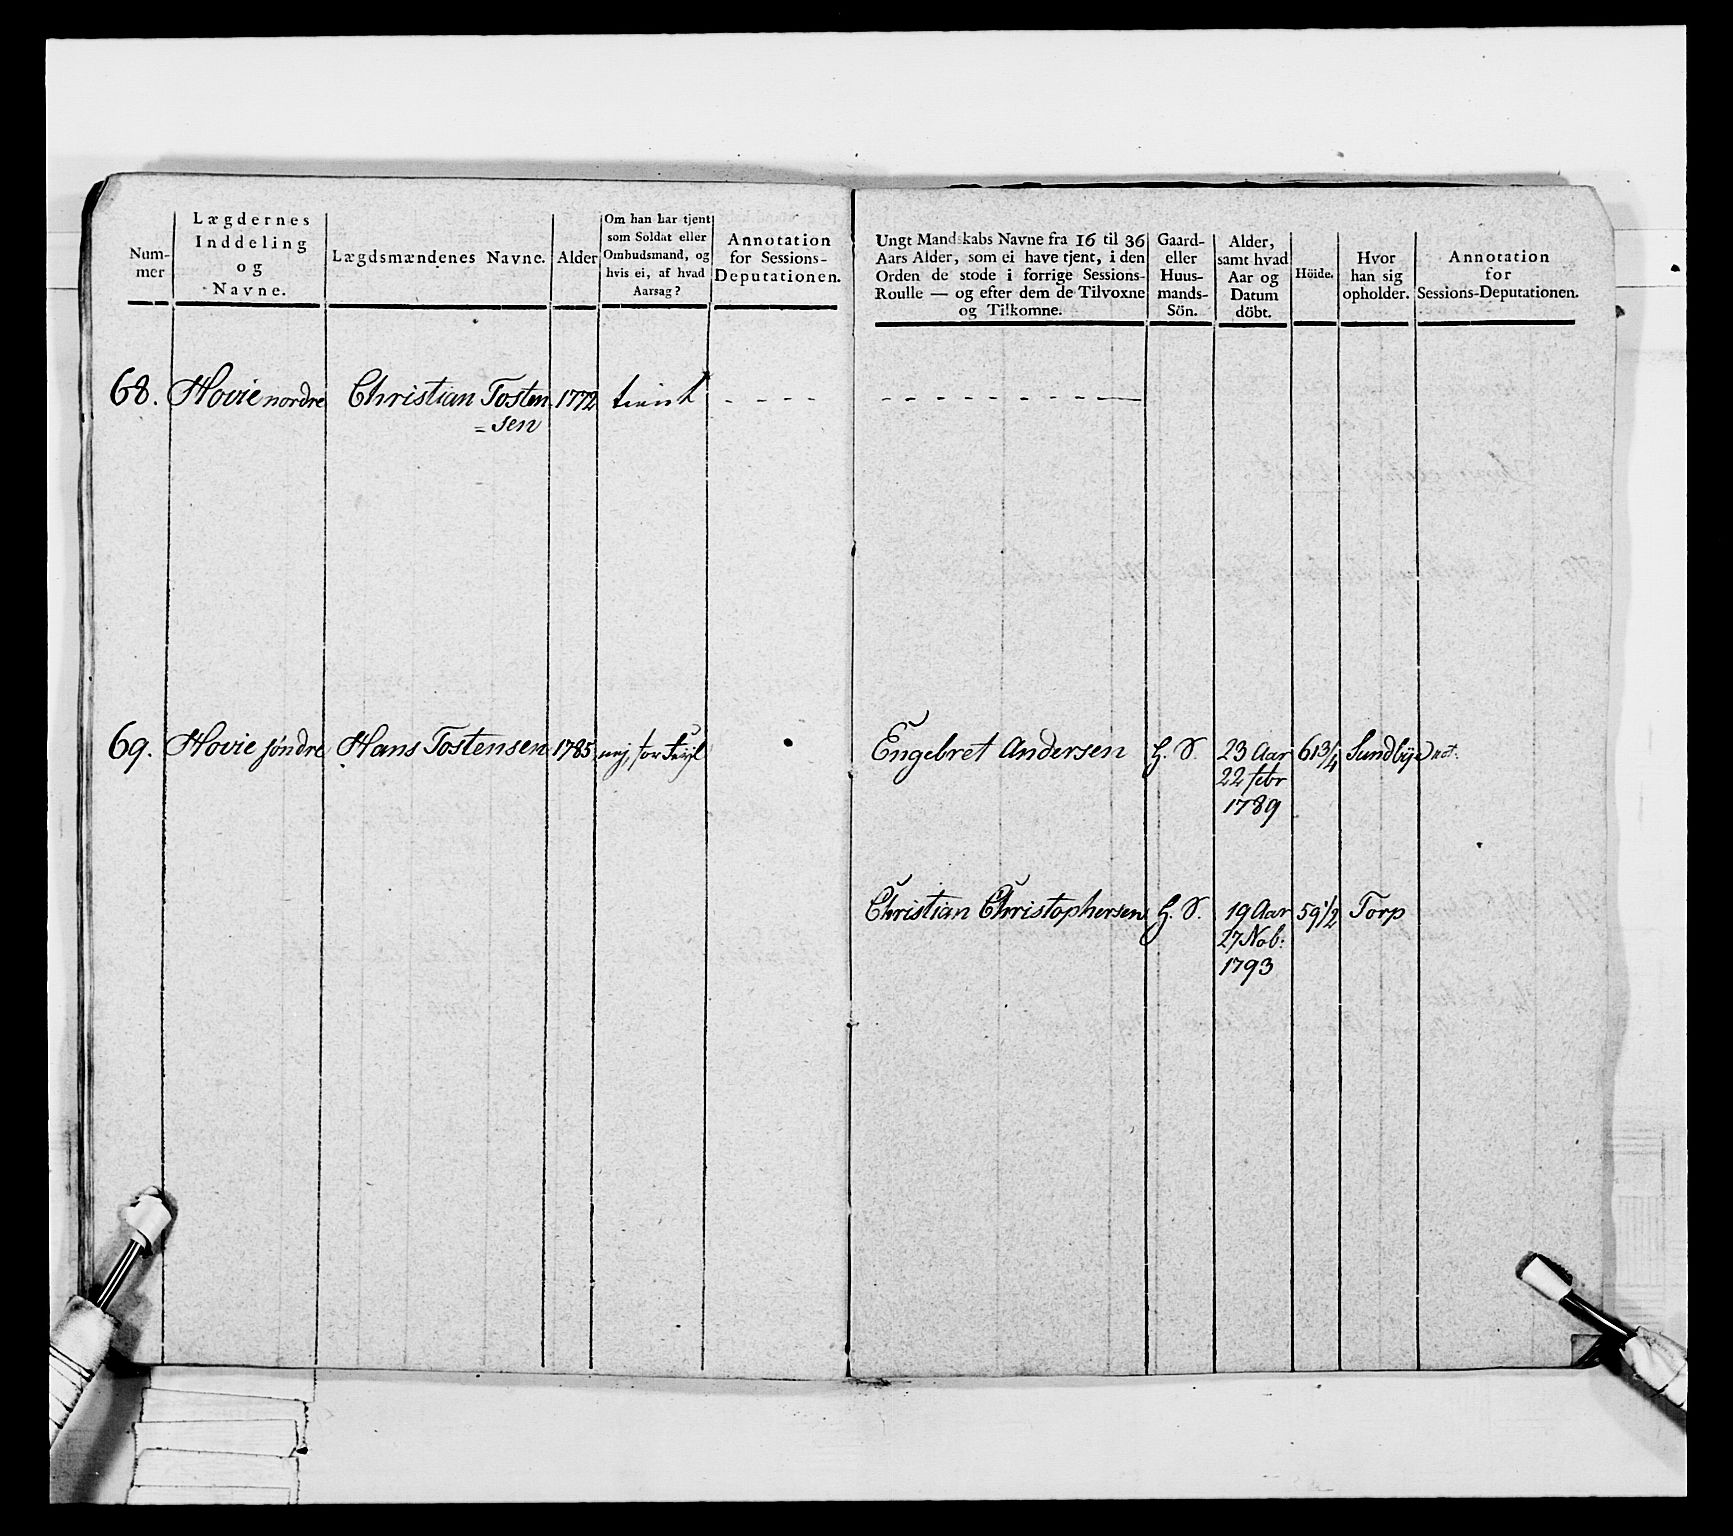 Num-
mer
Lægdernes
Inddeling
og
Navne.
Lægdsmændenes Navne.
Alder
Om han har tjent
som Soldat eller
Ombudsmand, og
hvis ei, af hvad
Aarsag?
Annotation
for Sessions-
Deputationen.
Ungt Mandskabs Navne fra 16 til 36
Aars Alder, som ei have tjent, i den
Orden de stode i forrige Sessions-
Roulle — og efter dem de Tilvoxne
og Tilkomne.
Gaard-
eller
Huus-
mands-
Sön.
Alder,
samt hvad
Aar og
Datum
döbt.
Höide.
Hvor
han sig
opholder.
Annotation
for
Sessions-Deputationen.
68. Hovie nordre Christian Tosten 1772 tient
= sen
69. Hovie söndre Hans Tostensen 1785 nej, for
Engebret Andersen G. S. 23 Aar 61 3/4 Sundbye
22 febr
1789
Christian Christophersen G. S. 19 Aar 59 1/2 Torp
27 Nob:
1793